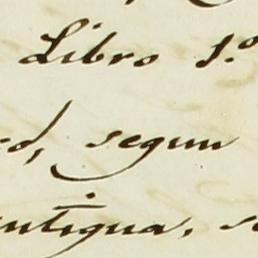 Libro 1.º
d, segun
antigua, se